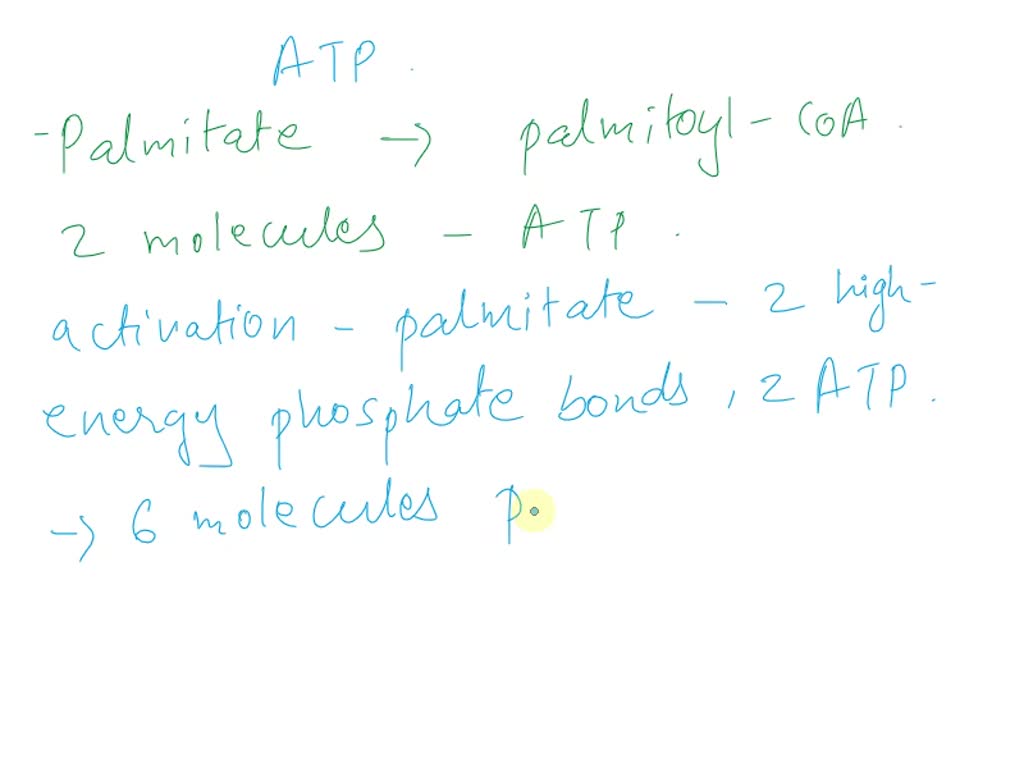 ATP.
-Palmitate → palmitoyl-CoA.
2 molecules - ATP.
activation - palmitate - 2 high-
energy phosphate bonds, 2 ATP.
→ 6 molecules p